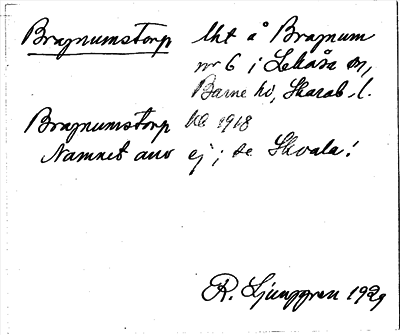 Bragnumstorp lht å Bragnum
nr 6 i Lekåsa sn,
Barne hd, Skarab. l.
Bragnumstorp ka 1918
Namnet anv ej; se Skvala!
R. Ljunggren 1929